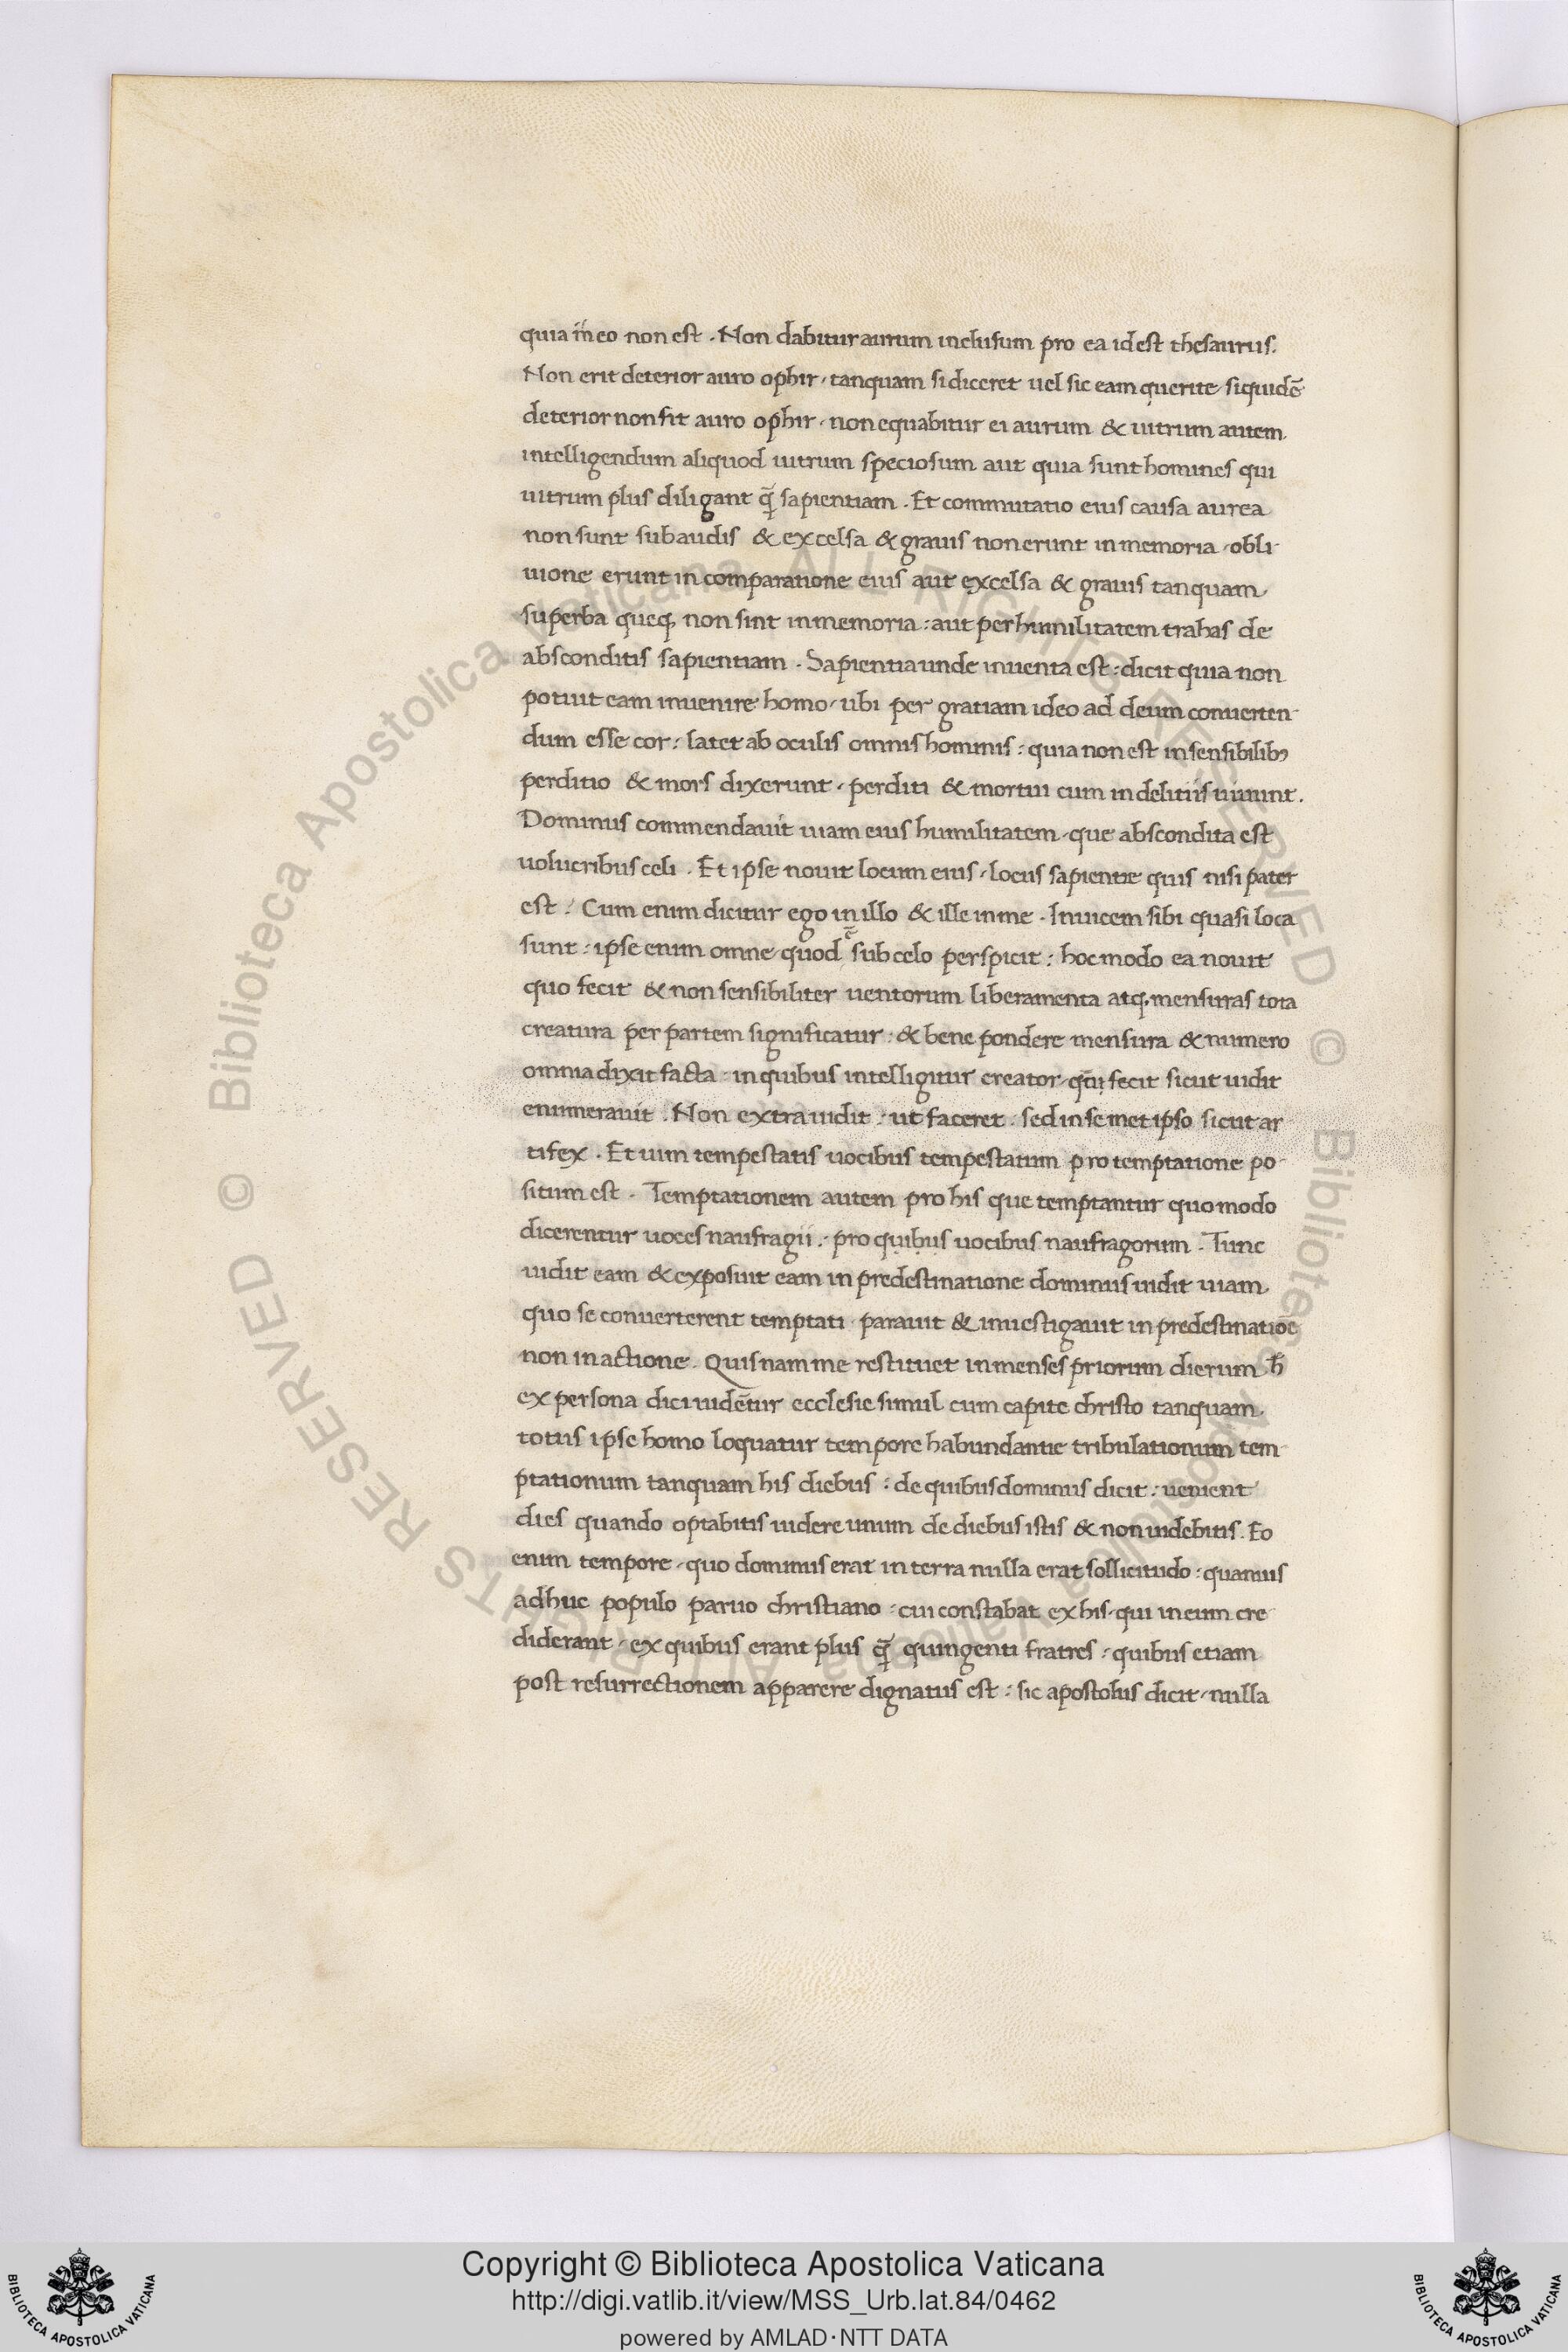 quia in eo non est. Non dabitur aurum inclusum pro ea id est thesaurus.
Non erit deterior auro ophir, tanquam si diceret uel sic eam querite siquidē
deterior non sit auro ophir, non equabitur ei aurum & uitrum autem
intelligendum aliquod uitrum speciosum aut quia sunt homines qui
uitrum plus diligant q̄ sapientiam. Et commutatio eius causa aurea
non sunt subaudis & excelsa & grauis non erunt in memoria, obli
uione erunt in comparatione eius aut excelsa & grauis tanquam
superba queq; non sint in memoria: aut per humilitatem trahas de
absconditis sapientiam. Sapientia unde inuenta est: dicit quia non
potuit eam inuenire homo, ubi per gratiam ideo ad deum conuerten
dum esse cor: latet ab oculis omnis hominis: quia non est in sensibilib;
perditio & mors dixerunt, perditi & mortui cum in delitiis uiuunt.
Dominus commendauit uiam eius humilitatem, que abscondita est
uolucribus celi. Et ipse nouit locum eius, locus sapientie quis nisi pater
est: Cum enim dicitur ego in illo & ille in me. Inuicem sibi quasi loca
sunt: ipse enim omne quod ē sub celo perspicit: hoc modo ea nouit
quo fecit & non sensibiliter uentorum liberamenta atq; mensuras tota
creatura per partem significatur: & bene pondere mensura & numero
omnia dixit facta: in quibus intelligitur creator, fecit sicut uidit
enumerauit. Non extra uidit: ut faceret: sed in semet ipso sicut ar
tifex. Et uim tempestatis uocibus tempestatum pro temptatione po
situm est. Temptationem autem pro his que temptantur quomodo
dicerentur uoces naufragii: pro quibus uocibus naufragorum. Tunc
uidit eam & exposuit eam in predestinatione dominus uidit uiam
quo se conuerterent temptati, parauit & inuestigauit in predestinatiōe
non in actione. Quis nam me restituet in menses priorum dierum h̄
ex persona dici uidētur ecclesie simul cum capite christo tanquam
totus ipse homo loquatur tempore habundantie tribulationum tem
ptationum tanquam his diebus: de quibus dominus dicit: uenient
dies quando optabitis uidere unum de diebus istis & non uidebitis. Eo
enim tempore, quo dominus erat in terra nulla erat sollicitudo: quamuis
adhuc populo paruo christiano: cui constabat ex his, qui in eum cre
diderant, ex quibus erant plus q̄ quingenti fratres: quibus etiam
post resurrectionem apparere dignatus est: sic apostolus dicit, nulla
© Biblioteca Apostolica Vaticana ALL RIGHTS RESERVED
© Biblioteca Apostolica Vaticana ALL RIGHTS RESERVED
Copyright © Biblioteca Apostolica Vaticana
http://digi.vatlib.it/view/MSS_Urb.lat.84/0462
powered by AMLAD·NTT DATA
BIBLIOTECA APOSTOLICA VATICANA
BIBLIOTECA APOSTOLICA VATICANA